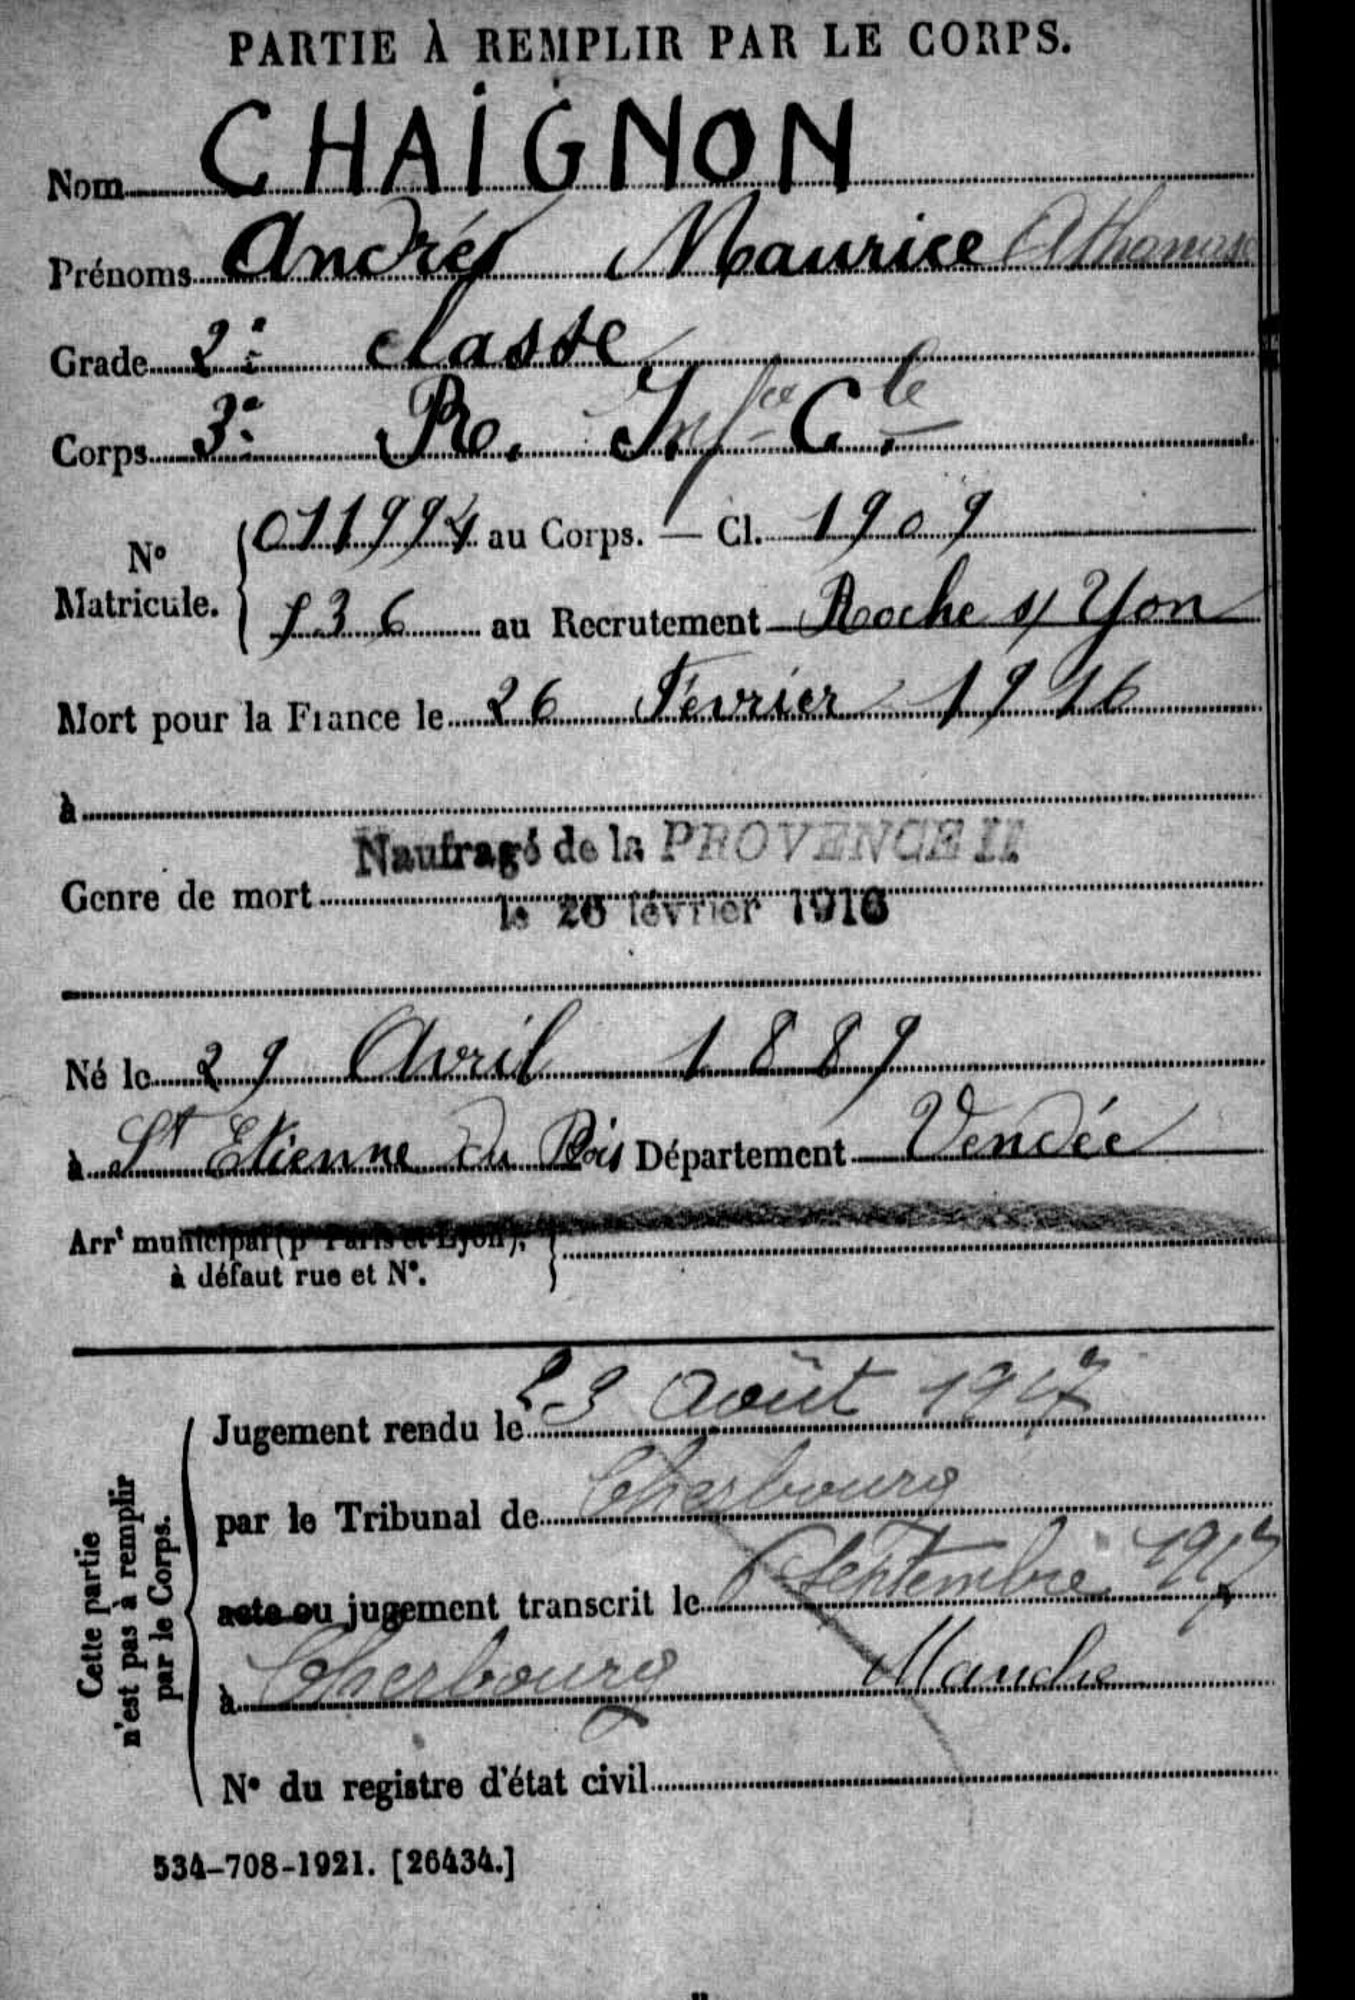 PARTIE À REMPLIR PAR LE CORPS.
Nom CHAIGNON
Prénoms Andrés Maurice Athanase
Grade 2e classe
Corps 3e R. Inf ce C. le
No Matricule. 011994 au Corps. — Cl. 1909
736 au Recrutement Roche s/ Yon
Mort pour la France le 26 Février 1916
à
Naufragé de la PROVENCE II
Genre de mort
le 26 février 1916
Né le 29 Avril 1889
à St Etienne du Bois Département Vendée
Arrt municipal (pr Paris et Lyon),
à défaut rue et No.
Cette partie n'est pas à remplir par le Corps.
Jugement rendu le 23 Août 1917
par le Tribunal de Cherbourg
acte ou jugement transcrit le 6 Septembre 1917
à Cherbourg Manche
No du registre d'état civil
534-708-1921. [26434.]